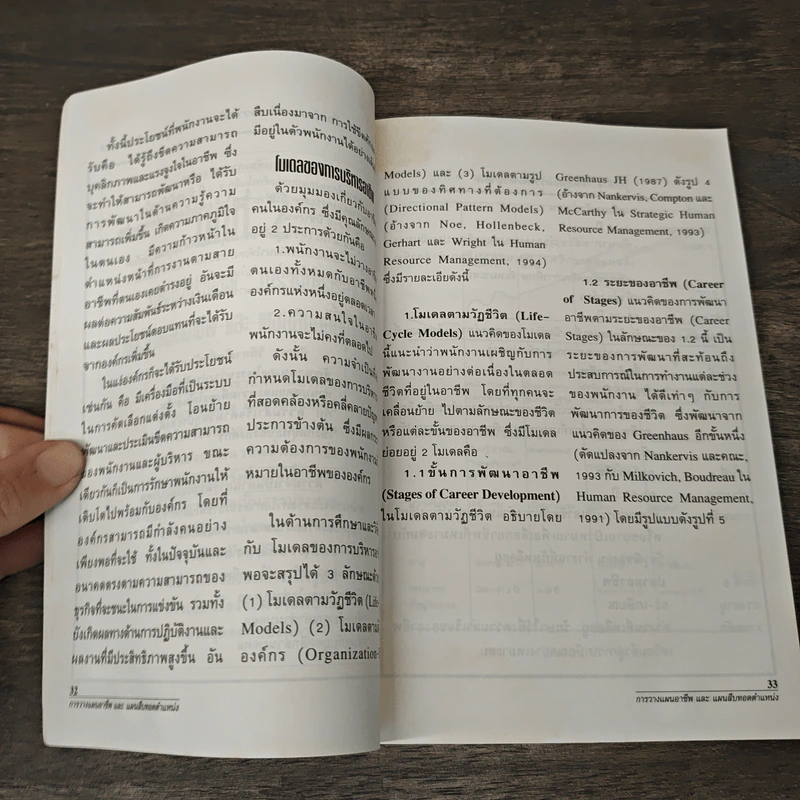 ทั้งนี้ประโยชน์ที่พนักงานจะได้
รับคือ ได้รู้ถึงขีดความสามารถ
บุคลิกภาพและแรงจูงใจในอาชีพ ซึ่ง
จะทำให้สามารถพัฒนาหรือ ได้รับ
การพัฒนาในด้านความรู้ความ
สามารถเพิ่มขึ้น เกิดความภาคภูมิใจ
ในตนเอง มีความก้าวหน้าใน
ตำแหน่งหน้าที่การงานตามสาย
อาชีพที่ตนเองเคยดำรงอยู่ อันจะมี
ผลต่อความสัมพันธ์ระหว่างเงินเดือน
และผลประโยชน์ตอบแทนที่จะได้รับ
จากองค์กรเพิ่มขึ้น
ในแง่องค์กรก็จะได้รับประโยชน์
เช่นกัน คือ มีเครื่องมือที่เป็นระบบ
ในการคัดเลือกแต่งตั้ง โอนย้าย
พัฒนาและประเมินขีดความสามารถ
ของพนักงานและผู้บริหาร ขณะ
เดียวกันก็เป็นการรักษาพนักงานให้
เติบโตไปพร้อมกับองค์กร โดยที่
องค์กรสามารถมีกำลังคนอย่าง
เพียงพอที่จะใช้ ทั้งในปัจจุบันและ
อนาคตตรงตามความสามารถของ
ธุรกิจที่จะชนะในการแข่งขัน รวมทั้ง
ยังเกิดผลทางด้านการปฏิบัติงานและ
ผลงานที่มีประสิทธิภาพสูงขึ้น อัน
สืบเนื่องมาจาก การใช้ขีด
มีอยู่ในตัวพนักงานได้อย่าง
โมเดลของการบริหารอาชีพ
ด้วยมุมมองเกี่ยวกับ
คนในองค์กร ซึ่งมีคุณลักษณะ
อยู่ 2 ประการด้วยกันคือ
1.พนักงานจะไม่วาง
ตนเองทั้งหมดกับอาชีพ
องค์กรแห่งหนึ่งอยู่ตลอดเวลา
2.ความสนใจใน
พนักงานจะไม่คงที่ตลอดไป
ดังนั้น ความจำเป็น
กำหนดโมเดลของการบริหาร
ที่สอดคล้องหรือคลี่คลายปัญหา
ประการข้างต้น ซึ่งมีผล
ความต้องการของพนักงาน
หมายในอาชีพขององค์กร
ในด้านการศึกษาและ
กับ โมเดลของการบริหาร
พอจะสรุปได้ 3 ลักษณะ
(1) โมเดลตามวัฏชีวิต (Life-
Models) (2) โมเดลตาม
องค์กร (Organization-
32
การวางแผนอาชีพ และ แผนสืบทอดตำแหน่ง
Models) และ (3) โมเดลตามรูป
แบบของทิศทางที่ต้องการ
(Directional Pattern Models)
(อ้างจาก Noe, Hollenbeck,
Gerhart และ Wright ใน Human
Resource Management, 1994)
ซึ่งมีรายละเอียดังนี้
1.โมเดลตามวัฏชีวิต (Life-
Cycle Models) แนวคิดของโมเดล
นี้แนะนำว่าพนักงานเผชิญกับการ
พัฒนางานอย่างต่อเนื่องในตลอด
ชีวิตที่อยู่ในอาชีพ โดยที่ทุกคนจะ
เคลื่อนย้าย ไปตามลักษณะของชีวิต
หรือแต่ละขั้นของอาชีพ ซึ่งมีโมเดล
ย่อยอยู่ 2 โมเดลคือ
1.1 ขั้นการพัฒนาอาชีพ
(Stages of Career Development)
ในโมเดลตามวัฏชีวิต อธิบายโดย
Greenhaus JH (1987) ดังรูป 4
(อ้างจาก Nankervis, Compton และ
McCarthy ใน Strategic Human
Resource Management, 1993)
1.2 ระยะของอาชีพ (Career
of Stages) แนวคิดของการพัฒนา
อาชีพตามระยะของอาชีพ (Career
Stages) ในลักษณะของ 1.2 นี้ เป็น
ระยะของการพัฒนาที่สะท้อนถึง
ประสบการณ์ในการทำงานแต่ละช่วง
ของพนักงาน ได้ดีเท่าๆ กับการ
พัฒนาการของชีวิต ซึ่งพัฒนาจาก
แนวคิดของ Greenhaus อีกขั้นหนึ่ง
(ดัดแปลงจาก Nankervis และคณะ,
1993 กับ Milkovich, Boudreau ใน
Human Resource Management,
1991) โดยมีรูปแบบดังรูปที่ 5
33
การวางแผนอาชีพ และ แผนสืบทอดตำแหน่ง